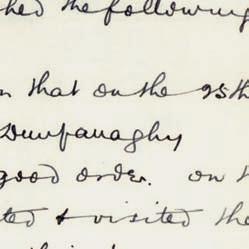 hed the following
n that on the 25th
Dunfanaghy
good order. on t
ted & visited the